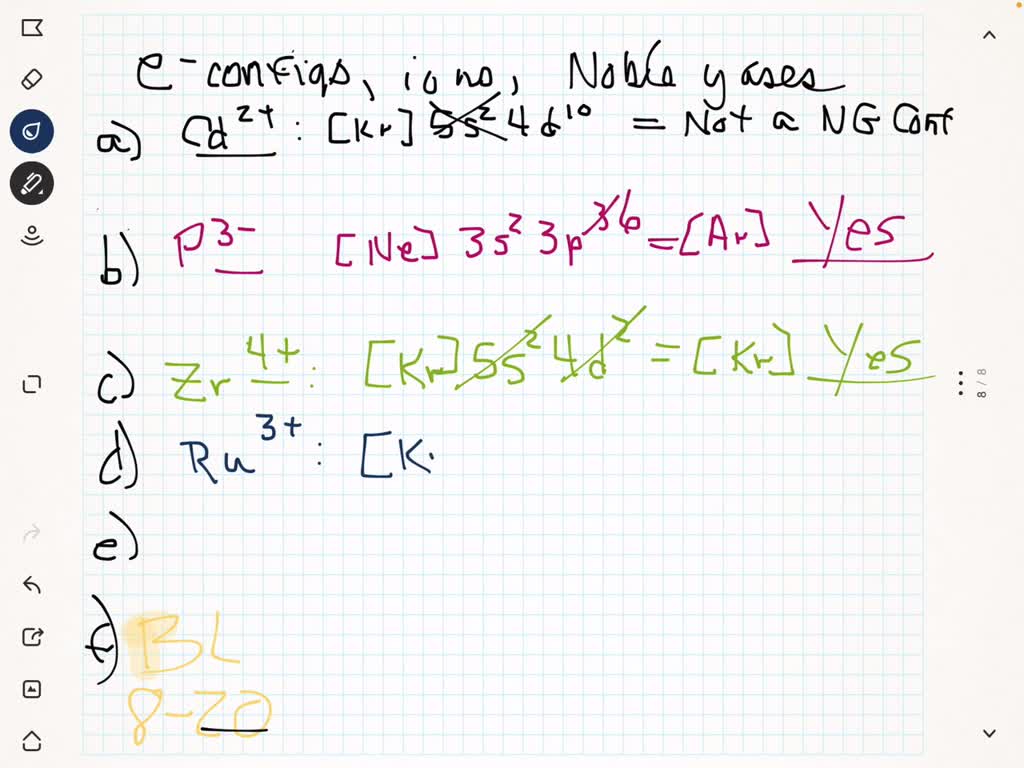 e- configs, ions, Noble gases
a) Cd2+ : [Kr] 5s2 4d10 = Not a NG Conf
b) P3- [Ne] 3s2 3p3 6 = [Ar] Yes
c) Zr4+ : [Kr] 5s2 4d2 = [Kr] Yes
d) Ru3+ : [K
e)
f) BL
8-20
8/8